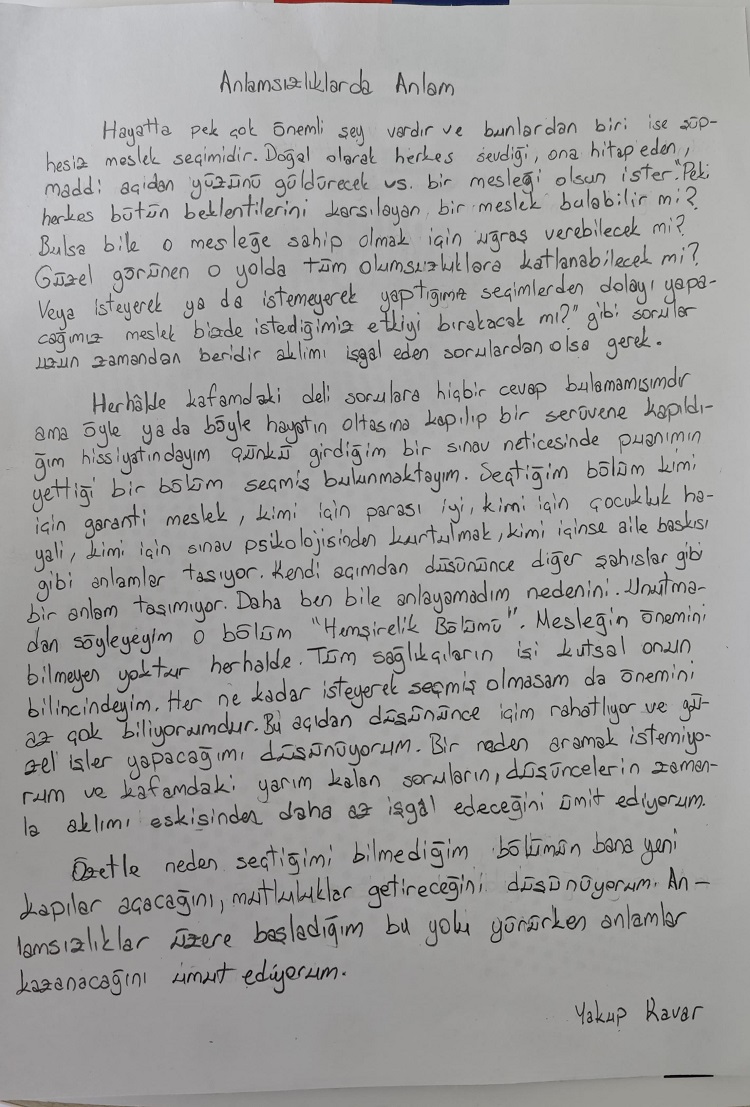 Anlamsızlıklarda Anlam
Hayatta pek çok önemli şey vardır ve bunlardan biri ise şüp-
hesiz meslek seçimidir. Doğal olarak herkes sevdiği, ona hitap eden,
maddi açıdan yüzünü güldürecek vs. bir mesleği olsun ister. "Peki
herkes bütün beklentilerini karşılayan bir meslek bulabilir mi?
Bulsa bile o mesleğe sahip olmak için uğraş verebilecek mi?
Güzel görünen o yolda tüm olumsuzluklara katlanabilecek mi?
Veya isteyerek ya da istemeyerek yaptığımız seçimlerden dolayı yapa-
cağımız meslek bizde istediğimiz etkiyi bırakacak mı?" gibi sorular
uzun zamandan beridir aklımı işgal eden sorulardan olsa gerek.
Herhâlde kafamdaki deli sorulara hiçbir cevap bulamamışımdır
ama öyle ya da böyle hayatın oltasına kapılıp bir serüvene kapıldı-
ğım hissiyatındayım çünkü girdiğim bir sınav neticesinde puanımın
yettiği bir bölüm seçmiş bulunmaktayım. Seçtiğim bölüm kimi
için garanti meslek, kimi için parası iyi, kimi için çocukluk ha-
yali, kimi için sınav psikolojisinden kurtulmak, kimi içinse aile baskısı
gibi anlamlar taşıyor. Kendi açımdan düşününce diğer şahıslar gibi
bir anlam taşımıyor. Daha ben bile anlayamadım nedenini. Unutma-
dan söyleyeyim o bölüm "Hemşirelik Bölümü". Mesleğin önemini
bilmeyen yoktur herhalde. Tüm sağlıkçıların işi kutsal onun
bilincindeyim. Her ne kadar isteyerek seçmiş olmasam da önemini
az çok biliyorumdur. Bu açıdan düşününce içim rahatlıyor ve gü-
zel işler yapacağımı düşünüyorum. Bir neden aramak istemiyo-
rum ve kafamdaki yarım kalan soruların, düşüncelerin zaman-
la aklımı eskisinden daha az işgal edeceğini ümit ediyorum.
Özetle neden seçtiğimi bilmediğim bölümün bana yeni
kapılar açacağını, mutluluklar getireceğini düşünüyorum. An-
lamsızlıklar üzere başladığım bu yolu yürürken anlamlar
kazanacağını umut ediyorum.
Yakup Kavar